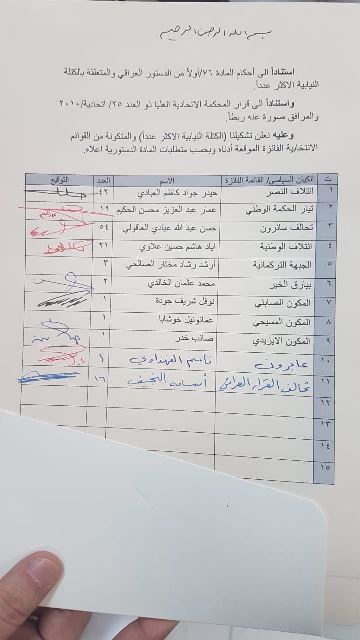 بسم الله الرحمن الرحيم
استناداً الى أحكام المادة ٧٦/أولاً من الدستور العراقي والمتعلقة بالكتلة
النيابية الاكثر عدداً.
واستناداً الى قرار المحكمة الاتحادية العليا ذو العدد ٢٥/ اتحادية/٢٠١٠
والمرافق صورة عنه ربطاً.
وعليه نعلن تشكيلنا (الكتلة النيابية الاكثر عدداً) والمتكونة من القوائم
الانتخابية الفائزة الموقعة أدناه وبحسب متطلبات المادة الدستورية اعلاه.
ت الكيان السياسي/ القائمة الفائزة الاسم العدد التوقيع
١ ائتلاف النصر حيدر جواد كاظم العبادي ٤٢
٢ تيار الحكمة الوطني عمار عبد العزيز محسن الحكيم ١٩
٣ تحالف سائرون حسن عبد الله عبادي العاقولي ٥٤
٤ ائتلاف الوطنية اياد هاشم حسين علاوي ٢١
٥ الجبهة التركمانية أرشد رشاد مختار الصالحي ٣
٦ بيارق الخير محمد عثمان الخالدي ٢
٧ المكون الصابئي نوفل شريف جودة ١
٨ المكون المسيحي عمانوئيل خوشابا ١
٩ المكون الايزيدي صائب خدر ١
١٠ عابرون قاسم الفهداوي
١١ تحالف القرار العراقي أسامة النجيفي ١٦
١٢
١٣
١٤
١٥